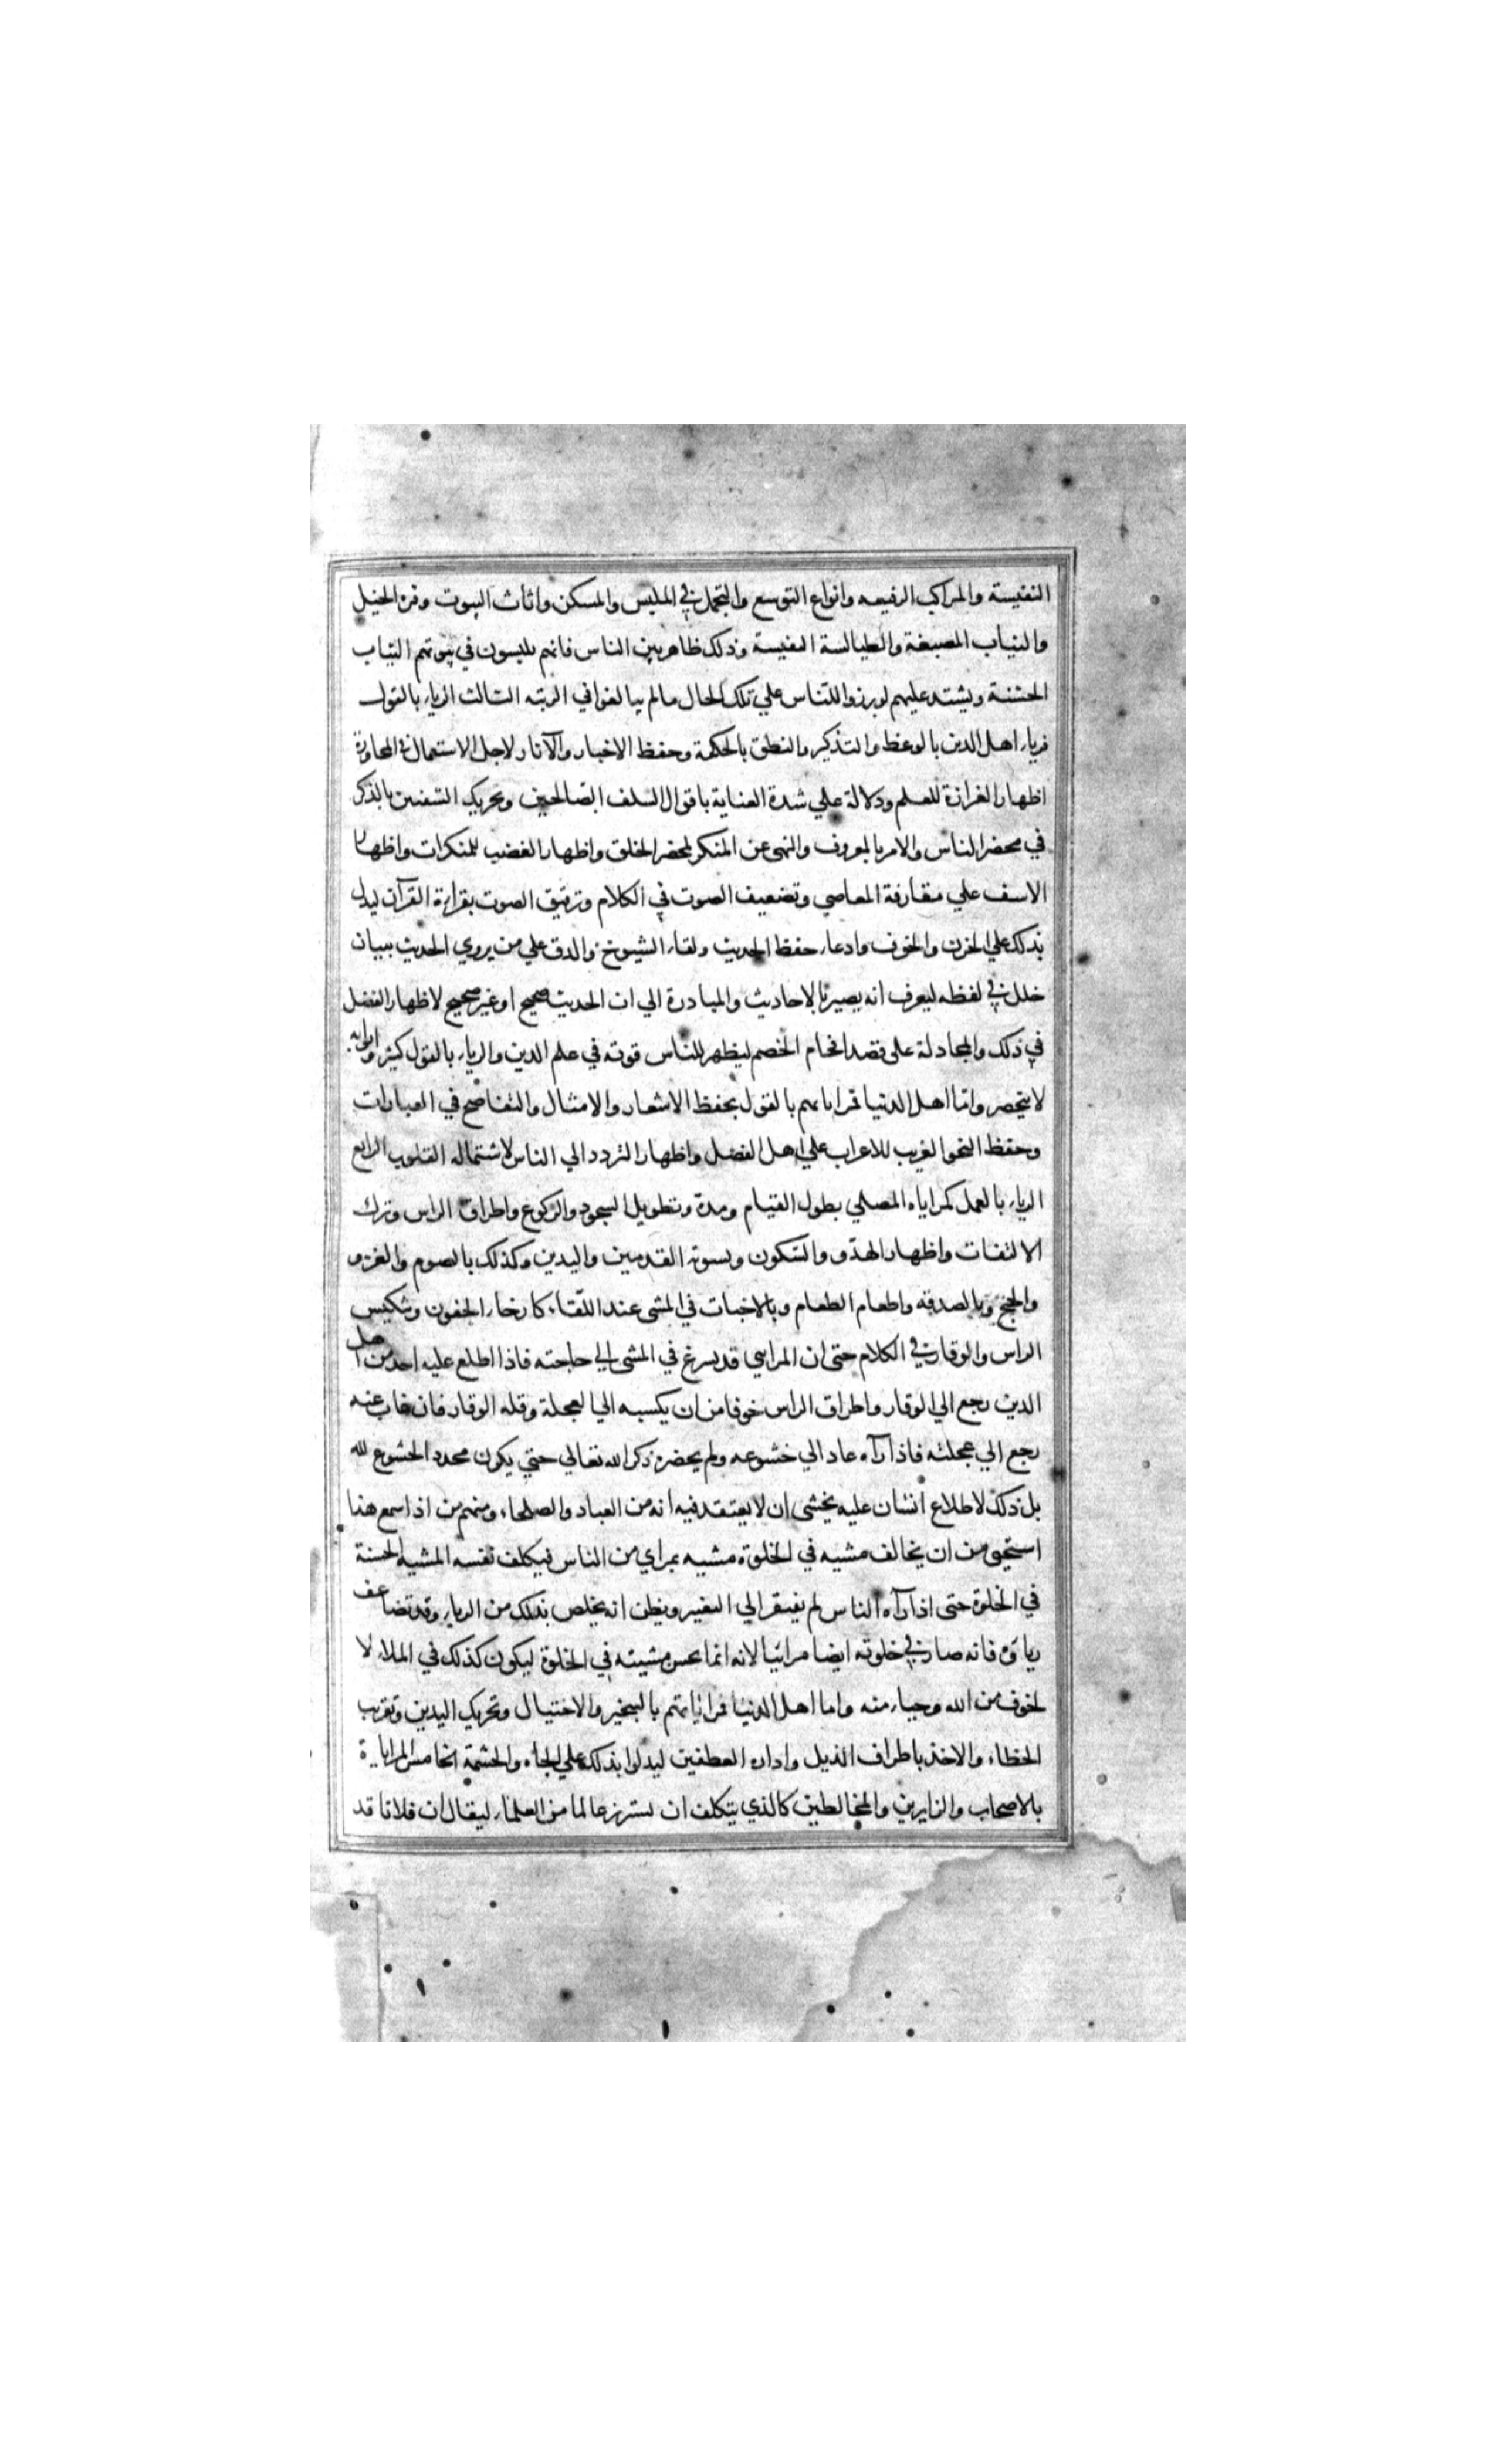 النفيسة والمراكب الرفيعه وانواع التوسع والتجمل في الملبس والمسكن واثاث البيوت وفره الخيل
والثياب المصبغة والطيالسة النفيسة وذلك ظاهر بين الناس فانهم يلبسون في بيوتهم الثياب
الخشنة ويشتد عليهم لو برزوا للناس علي تلك الحال ما لم يبالغوا في الزينه الثالث الرياء بالقول
فرياء اهل الدين بالوعظ والتذكير والنطق بالحكمة وحفظ الاخبار والآثار لاجل الاستعمال في المحاورة
اظهارا لغزارة العلم ودلالة علي شدة العناية باقوال السلف الصالحين وتحريك الشفتين بالذكر
في محضر الناس والامر بالمعروف والنهي عن المنكر لمحضر الخلق واظهار الغضب للمنكرات واظهار
الاسف علي مقارفة المعاصي وتضعيف الصوت في الكلام وترقيق الصوت بقراءة القرآن ليدل
بذلك علي الحزن والخوف وادعاء حفظ الحديث ولقاء الشيوخ والدق علي من يروي الحديث ببيان
خلل في لفظه ليعرف انه بصير بالاحاديث والمبادرة الي ان الحديث صحيح او غير صحيح لاظهار الفضل
في ذلك والمجادلة على قصد افحام الخصم ليظهر للناس قوته في علم الدين والرياء بالقول كثير وابوابه
لا ينحصر واما اهل الدنيا فمراياتهم بالقول بحفظ الاشعار والامثال والتفاصح في العبارات
وحفظ النحو الغريب للاغراب علي اهل الفضل واظهار التردد الي الناس لاستمالة القلوب الرابع
الرياء بالعمل كمراياه المصلي بطول القيام ومدة وتطويل السجود والركوع واطراق الراس وترك
الالتفات واظهار الهدو والسكون وتسوية القدمين واليدين وكذلك بالصوم والغزو
والحج وبالصدقه واطعام الطعام وبالاخبات في المشي عند اللقاء كارخاء الجفون وتنكيس
الراس والوقار في الكلام حتى ان المرايي قد يسرع في المشى الي حاجته فاذا اطلع عليه احد من اهل
الدين رجع الي الوقار واطراق الراس خوفا من ان يكسبه الي العجلة وقله الوقار فان غاب عنه
رجع الي عجلته فاذا رآه عاد الي خشوعه ولم يحضره ذكر الله تعالي حتي يكون مجدد الخشوع لله
بل ذلك لاطلاع انسان عليه يخشى ان لا يعتقد فيه انه من العباد والصلحاء ومنهم من اذا سمع هذا
استحيى من ان يخالف مشيه في الخلوة مشيه بمراي من الناس فيكلف نفسه المشيه الحسنة
في الخلوة حتى اذا رآه الناس لم يفتقر الي التغيير ويظن انه يخلص بذلك من الرياء وقد تضاعف
رياؤه فانه صار في خلوته ايضا مرائيا لانه انما يحسن مشيته في الخلوة ليكون كذلك في الملاء لا
لخوف من الله وحياء منه واما اهل الدنيا فمراياتهم بالتبختر والاختيال وتحريك اليدين وتقريب
الخطاء والاخذ باطراف الذيل وادارة العطفين ليدلوا بذلك علي الجاه والحشمة الخامس المراياة
بالاصحاب والزايرين والمخالطين كالذي يتكلف ان يستزير عالما من العلماء ليقال ان فلانا قد